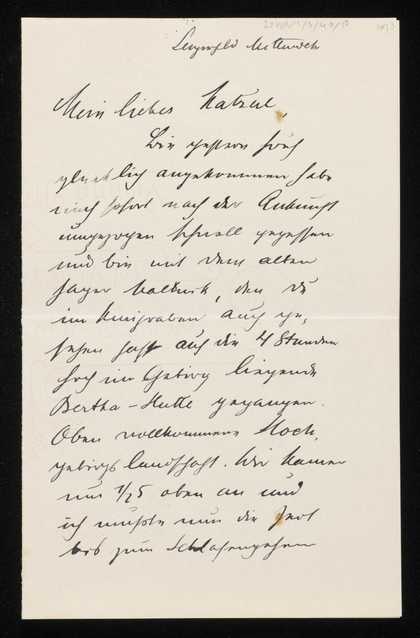 Mittwoch
Mein liebes
Bin gestern früh
glücklich angekommen habe
mich sofort nach der Ankunft
umgezogen schnell gegessen
und bin mit dem alten
Jäger den Du
im auch ge-
sehen hast auf die 4 Stunden
hoch im Gebirg liegende
Bertha-Hütte gegangen.
Oben vollkommene Hoch-
gebirgslandschaft. Wir kamen
um 1/25 oben an und
ich mußte nun die Zeit
bis zum Schlafengehen